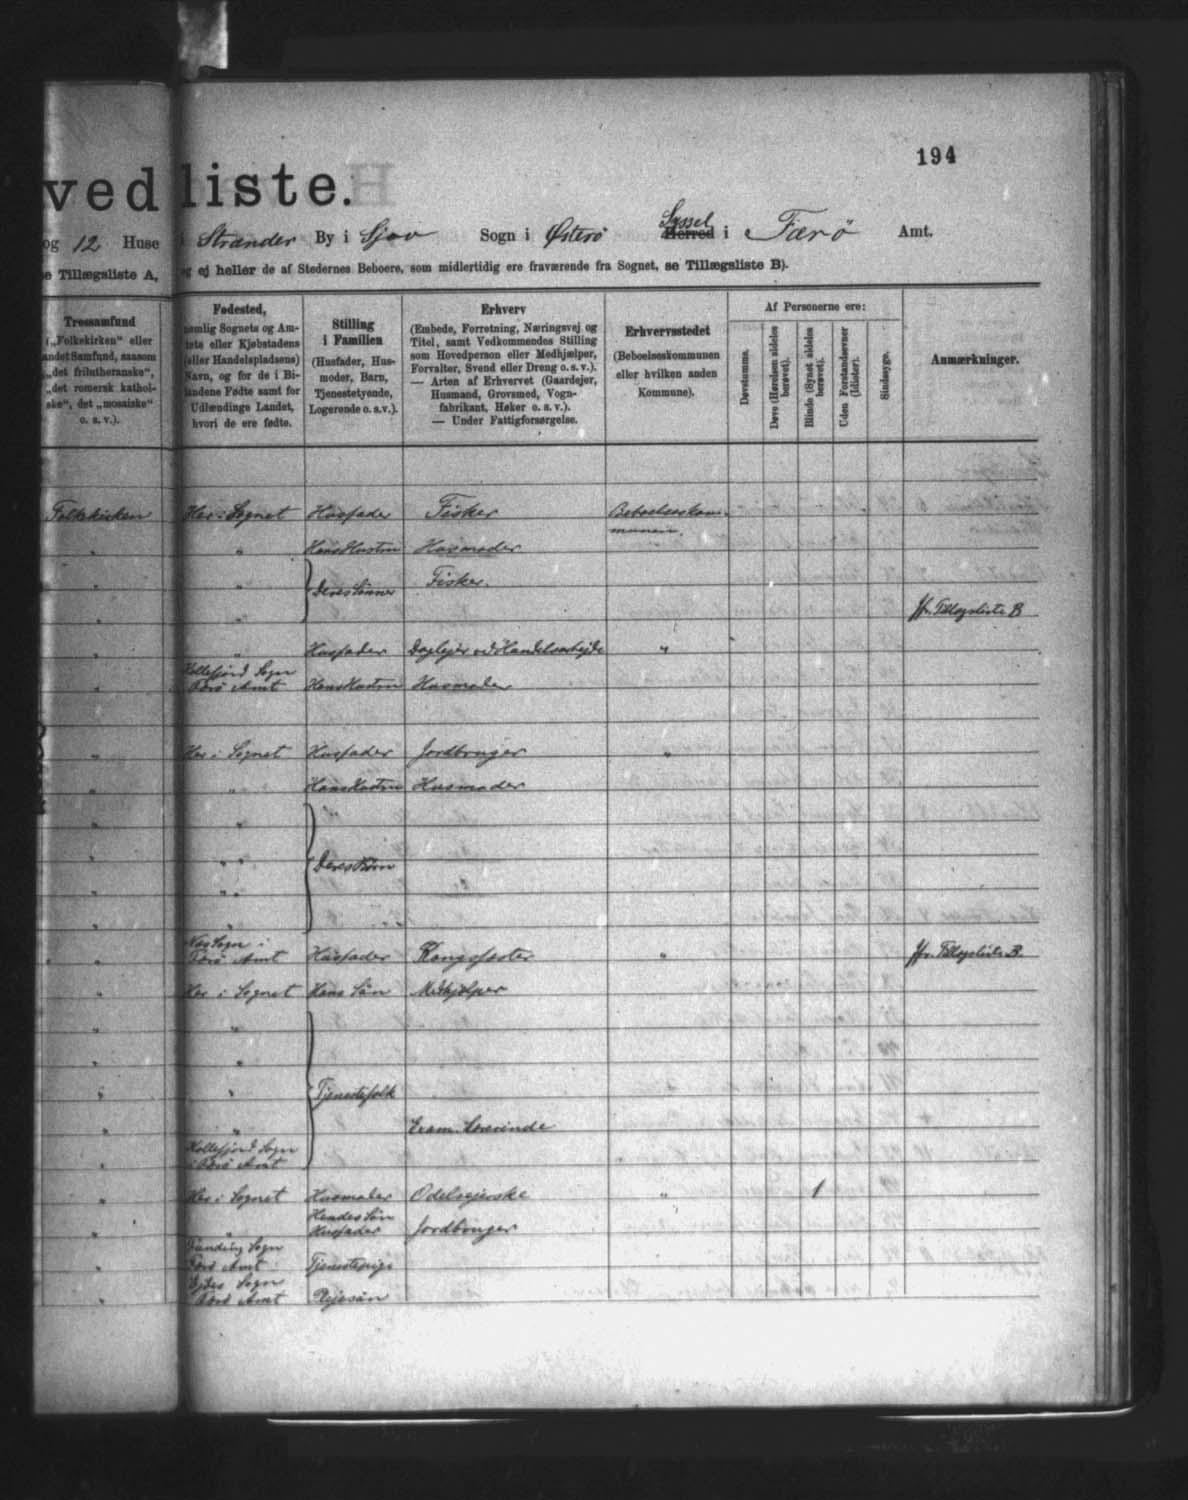 194
ved liste.
og 12 Huse i Strænder By i Sjov Sogn i Østerø Syssel Herred i Færø Amt.
e Tillægsliste A, og ej heller de af Stedernes Beboere, som midlertidig ere fraværende fra Sognet, se Tillægsliste B).
Trossamfund
(„Folkekirken“ eller
andet Samfund, saasom
„det frilutheranske“,
„det romersk kathol-
ske“, det „mosaiske“
o. s. v.).
Fødested,
nemlig Sognets og Am-
tets eller Kjøbstadens
(eller Handelspladsens)
Navn, og for de i Bi-
landene Fødte samt for
Udlændinge Landet,
hvori de ere fødte.
Stilling
i Familien
(Husfader, Hus-
moder, Barn,
Tjenestetyende,
Logerende o. s. v.).
Erhverv
(Embede, Forretning, Næringsvej og
Titel, samt Vedkommendes Stilling
som Hovedperson eller Medhjælper,
Forvalter, Svend eller Dreng o. s. v.).
— Arten af Erhvervet (Gaardejer,
Husmand, Grovsmed, Vogn-
fabrikant, Høker o. s. v.).
— Under Fattigforsørgelse.
Erhvervsstedet
(Beboelseskommunen
eller hvilken anden
Kommune).
Af Personerne ere:
Døvstumme.
Døve (Hørelsen aldeles
berøvet).
Blinde (Synet aldeles
berøvet).
Uden Forstandsevner
(Idioter).
Sindssyge.
Anmærkninger.
Folkekirken Her i Sognet Husfader Fisker Beboelseskom-
munen.
" " Hans Hustru Husmoder
" " Deres Sønner Fisker.
" " Jfr. Tillægsliste B
" " Husfader Daglejer ved Handelsarbejde "
Kollefjord Sogn
" Færø Amt Hans Hustru Husmoder
" Her i Sognet Husfader Jordbruger "
" " Hans Hustru Husmoder
" "
" " Deres Børn
" "
" "
Næs Sogn i
" Færø Amt Husfader Kongsfæster " Jfr. Tillægsliste B.
" Her i Sognet Hans Sön Medhjælper
" "
" "
" " Tjenestefolk
" " Exam. Lærerinde
Kollefjord Sogn
" i Færø Amt
" Her i Sognet Husmoder Odelsejerske " 1
Hendes Sön
" " Husfader Jordbruger
Sogn
" Færø Amt Tjenestepige
Ejdes Sogn
" Færø Amt Plejesön